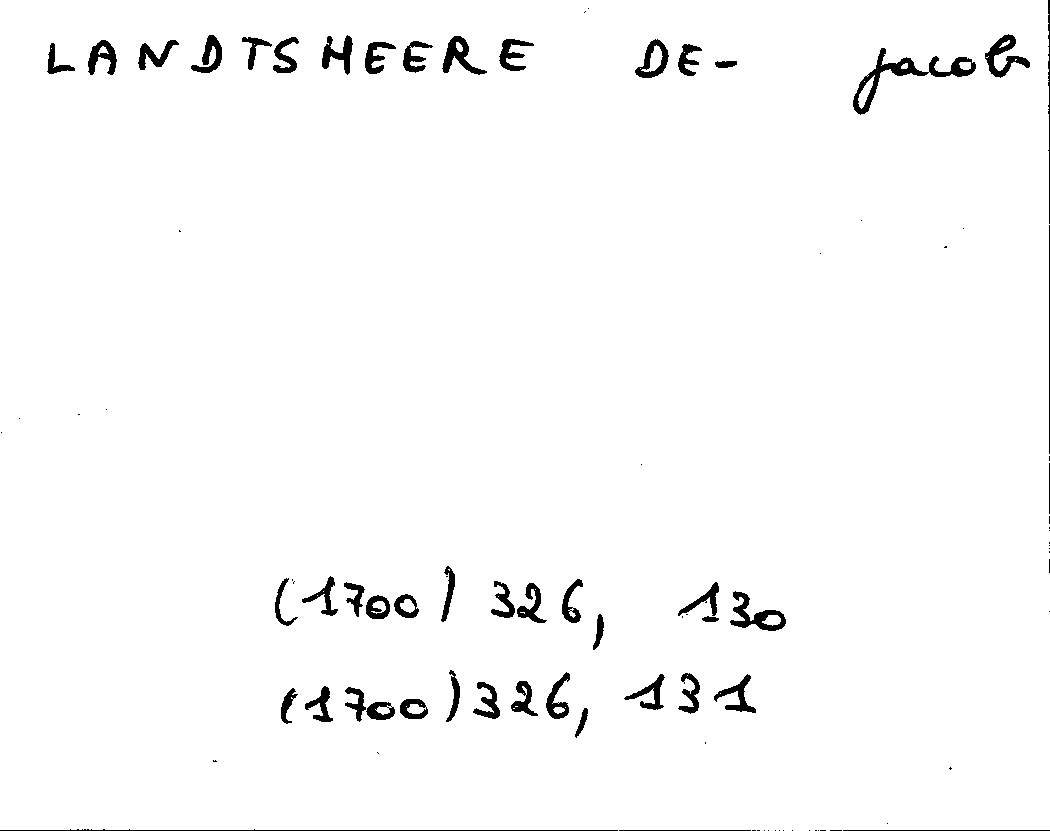 LANDTSHEERE DE- Jacob
(1700) 326, 130
(1700) 326, 131